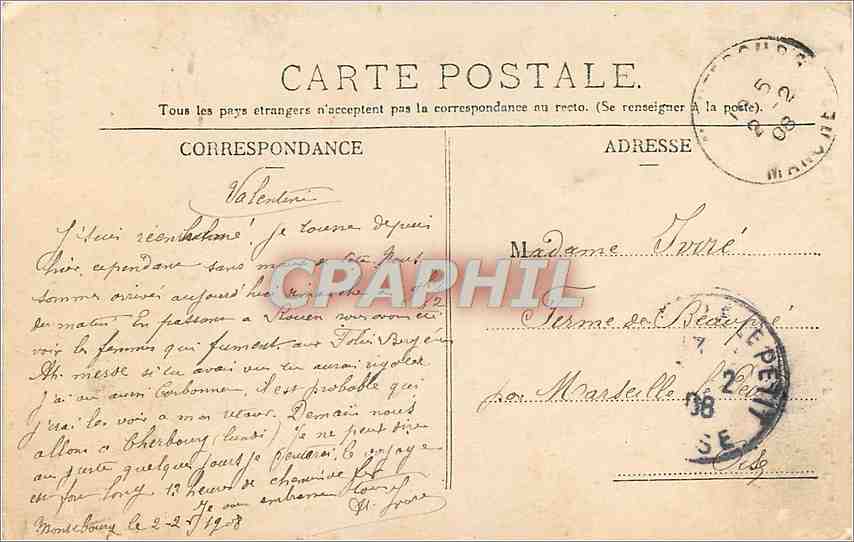 CARTE POSTALE.
Tous les pays etrangers n'acceptent pas la correspondance au recto. (Se renseigner à la poste).
CORRESPONDANCE
Valentine
Je suis réenrhumé! Je tousse depuis
hier, cependant sans mal de tête. Nous
sommes arrivés aujourd'hui dimanche à
du matin. En passant à Rouen nous avons été
voir les femmes qui fument aux Folies Bergère
Ah merse si tu avais vu tu aurais rigolé
J'ai vu aussi Carbonnen, il est probable que
j'irai les voir à mon retour. Demain nous
allons à Cherbourg (lundi) Je ne peut dire
au juste quelques jours je
est fort long 13 heures de chemin de fer
Je vous embrasse tous
Montebourg le 2-2-1908
ADRESSE
Madame Ivoré
Ferme de Beaupré
par Marseille le Petit
Oise
2 5
08 -2
MANCHE
LE PETIT
2
08
SE
CPAPHIL